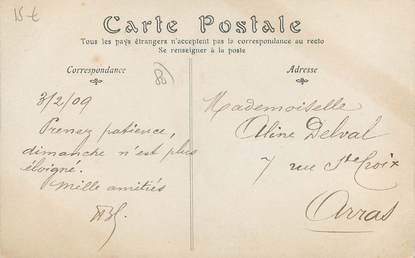 15 €
Carte Postale
Tous les pays étrangers n'acceptent pas la correspondance au recto
Se renseigner à la poste
Correspondance
80
Adresse
3/2/09
Prenez patience,
dimanche n'est plus
éloigné.
Mille amitiés
Mademoiselle
Aline Delval
7 rue Ste Croix
Arras